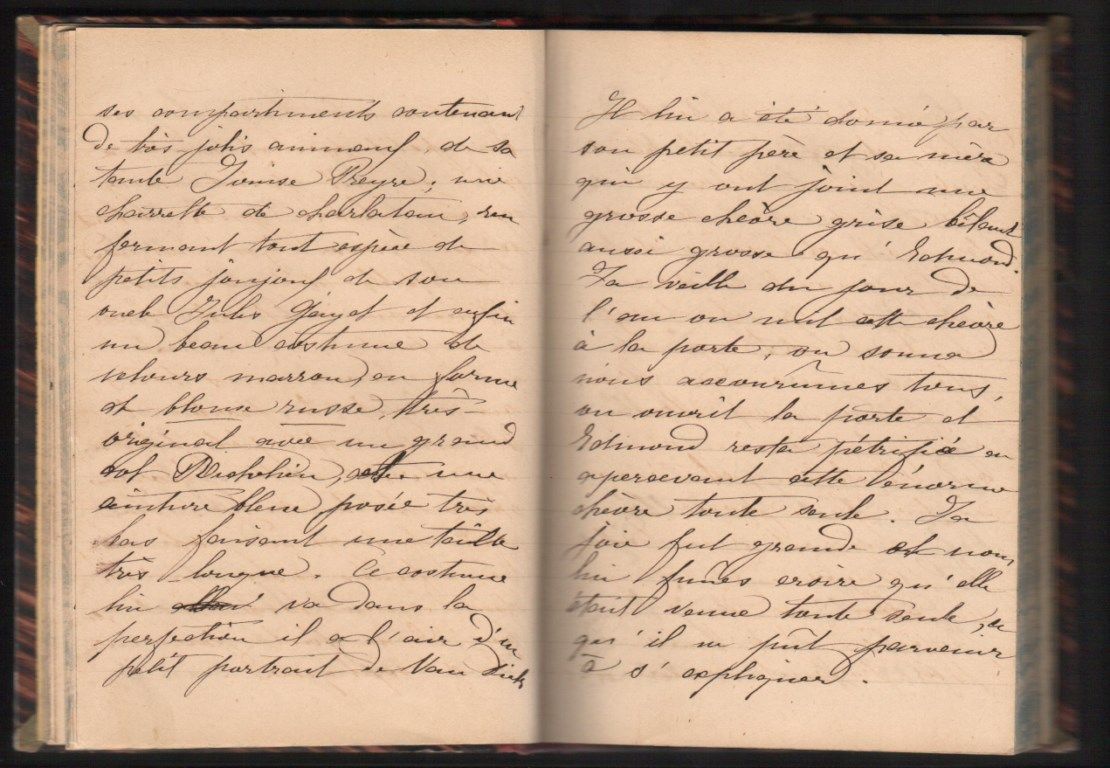 ses compartiments contenant
de très jolis animaux de sa
tante Louise Preyre; une
charrette de charlatan, ren
fermant tout espèce de
petits joujoux de son
oncle Jules Gayet et enfin
un beau costume de
velours marron, en forme
de blouse russe, très-
original avec un grand
col Richelieu, et une
ceinture bleue posée très
bas faisant une taille
très longue. Ce costume
lui va dans la
perfection il a l'air d'un
petit portrait de Van Dick
Il lui a été donné par
son petit père et sa mère
qui y ont joint une
grosse chèvre grise bêlant
aussi grosse qu'Edmond.
La veille du jour de
l'an on mit cette chèvre
à la porte, on sonna
nous accourûmes tous,
on ouvrit la porte et
Edmond resta pétrifié en
apercevant cette énorme
chèvre toute seule. La
joie fut grande et nous
lui fîmes croire qu'elle
était venue toute seule, ce
qu'il ne pût parvenir
à s'expliquer.